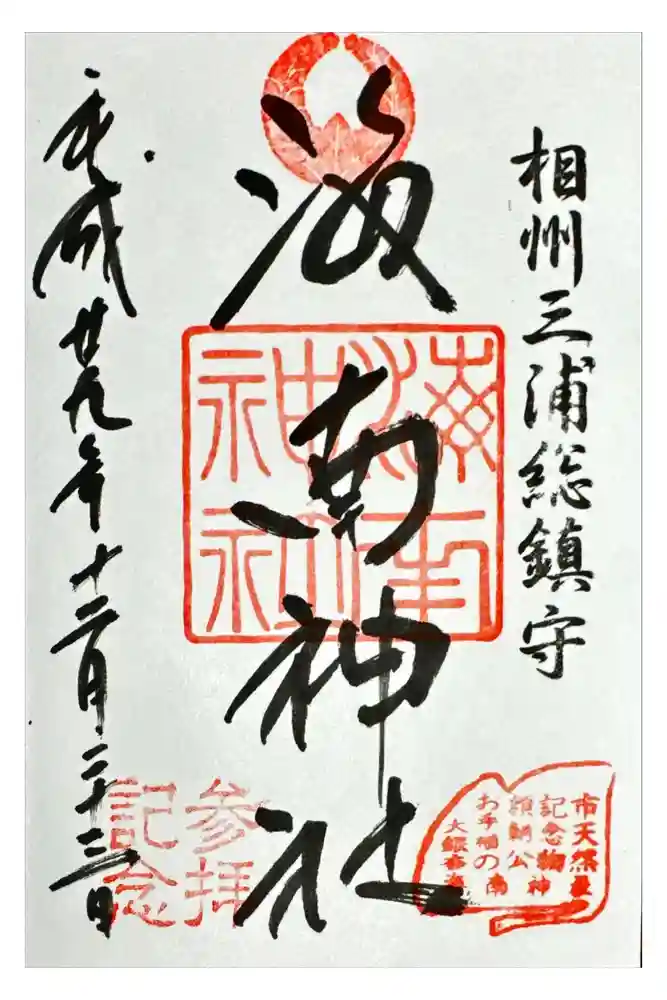 相州三浦総鎮守
海南神社
海南神社
平成廿九年十二月二十三日
参拝
記念
市天然
記念物
神
頼朝公
お手植の
大銀杏